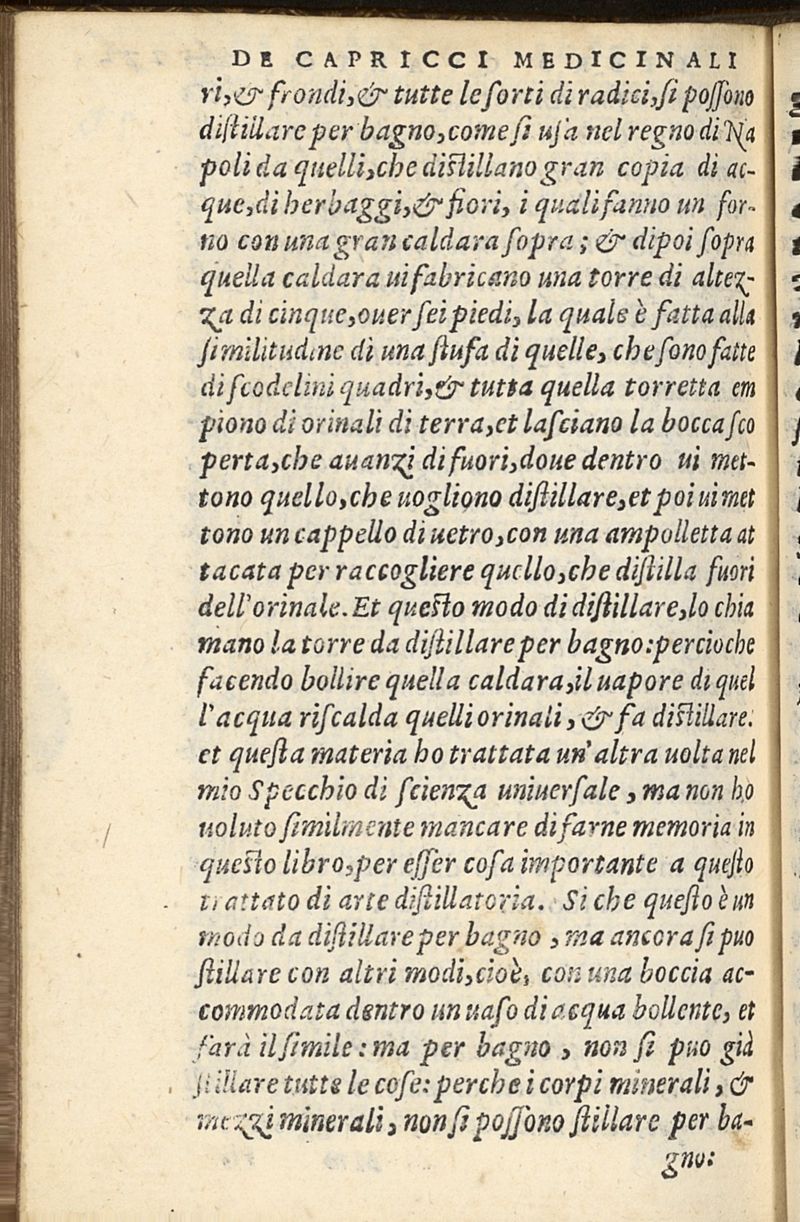 DE CAPRICCI MEDICINALI
ri,& frondi,& tutte le ſorti di radici,ſi poſſono
diſtillare per bagno,come ſi uſa nel regno di Na
poli da quelli,che diſtillano gran copia di ac-
que,di herbaggi,& fiori, i quali fanno un for-
no con una gran caldara ſopra ; & dipoi ſopra
quella caldara ui fabricano una torre di altez-
za di cinque,ouer ſei piedi, la quale è fatta alla
ſimilitudine di una ſtufa di quelle, che ſono fatte
di ſcodelini quadri,& tutta quella torretta em
piono di orinali di terra,et laſciano la bocca ſco
perta,che auanzi di fuori,doue dentro ui met-
tono quello,che uogliono diſtillare,et poi ui met
tono un cappello di uetro,con una ampolletta at
tacata per raccogliere quello,che diſtilla fuori
dell'orinale. Et queſto modo di diſtillare,lo chia
mano la torre da diſtillare per bagno:percioche
facendo bollire quella caldara,il uapore di quel
l'acqua riſcalda quelli orinali , & fa diſtillare:
et queſta materia ho trattata un'altra uolta nel
mio Specchio di ſcienza uniuerſale , ma non ho
uoluto ſimilmente mancare di farne memoria in
queſto libro,per eſſer coſa importante a queſto
trattato di arte diſtillatoria. Si che queſto è un
modo da diſtillare per bagno , ma ancora ſi puo
ſtillare con altri modi,cioè, con una boccia ac-
commodata dentro un uaſo di acqua bollente, et
farà il ſimile : ma per bagno , non ſi puo già
ſtillare tutte le coſe: perche i corpi minerali , &
mezzi minerali , non ſi poſſono ſtillare per ba-
gno: